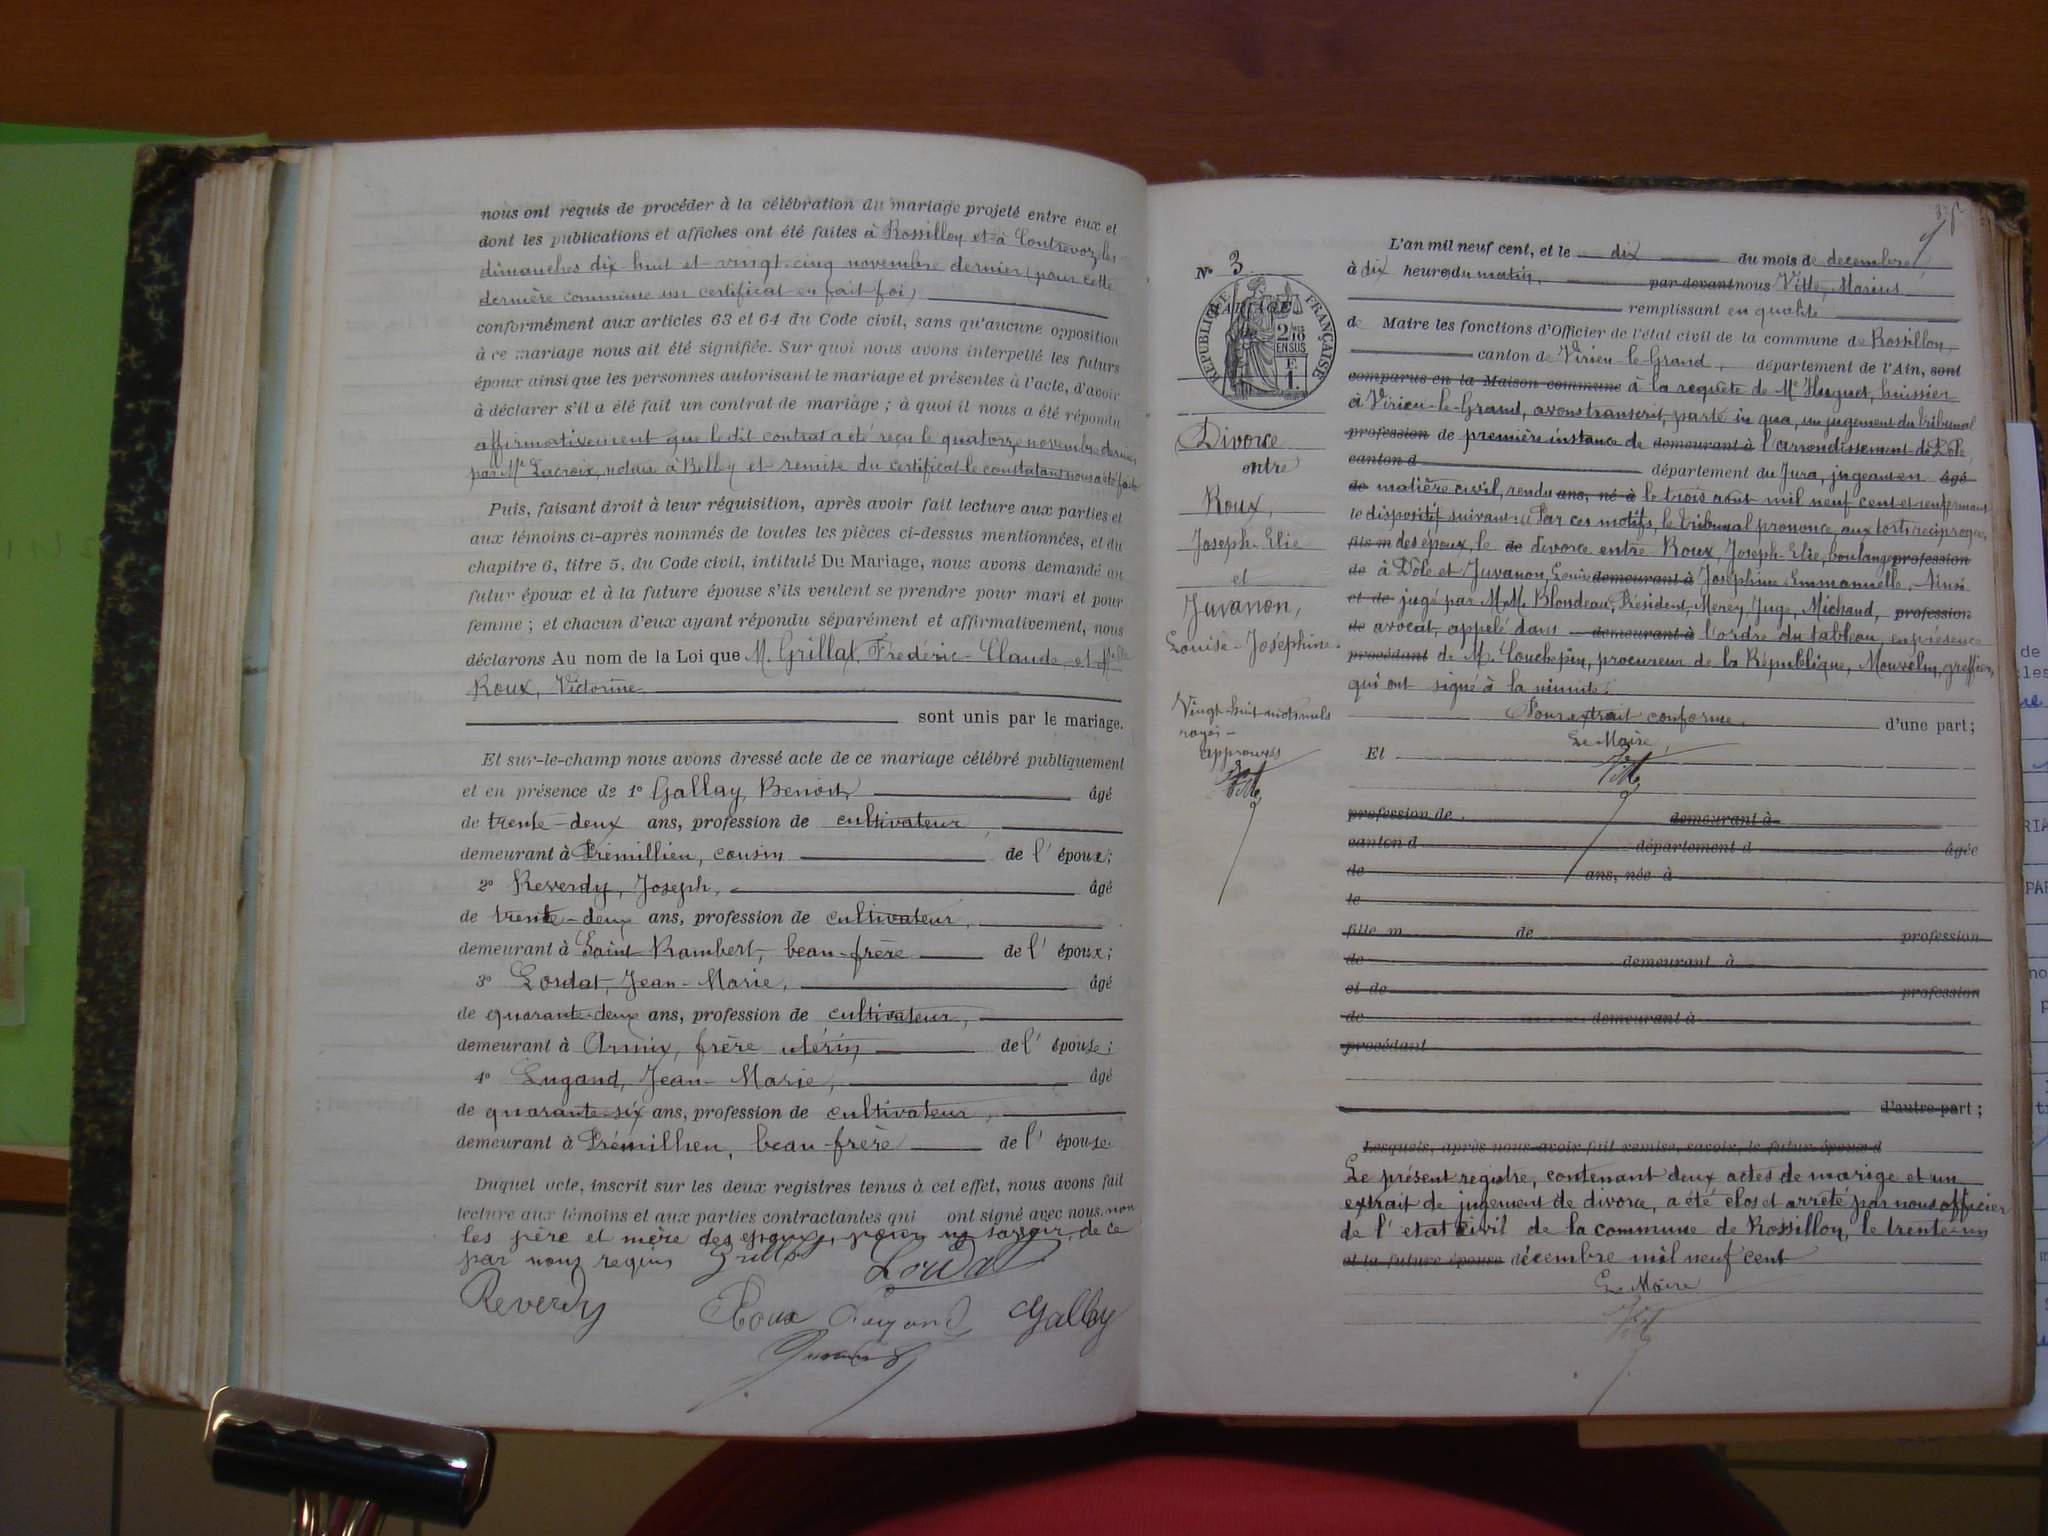 nous ont requis de procéder à la célébration du mariage projeté entre eux et
dont les publications et affiches ont été faites à Rossillon et à Contrevoz les
dimanches dix-huit et vingt-cinq novembre dernier (pour cette
dernière commune un certificat en fait foi)
conformément aux articles 63 et 64 du Code civil, sans qu'aucune opposition
à ce mariage nous ait été signifiée. Sur quoi nous avons interpellé les futurs
époux ainsi que les personnes autorisant le mariage et présentes à l'acte, d'avoir
à déclarer s'il a été fait un contrat de mariage ; à quoi il nous a été répondu
affirmativement que le dit contrat a été reçu le quatorze novembre dernier
par Me Lacroix, notaire à Belley et remise du certificat le constatant nous a été faite
Puis, faisant droit à leur réquisition, après avoir fait lecture aux parties et
aux témoins ci-après nommés de toutes les pièces ci-dessus mentionnées, et du
chapitre 6, titre 5, du Code civil, intitulé Du Mariage, nous avons demandé au
futur époux et à la future épouse s'ils veulent se prendre pour mari et pour
femme ; et chacun d'eux ayant répondu séparément et affirmativement, nous
déclarons Au nom de la Loi que M. Grillat, Frédéric-Claude, et Melle
Roux, Victorine
sont unis par le mariage.
Et sur-le-champ nous avons dressé acte de ce mariage célébré publiquement
et en présence de 1° Gallay, Benoit, âgé
de trente-deux ans, profession de cultivateur,
demeurant à Prémillieu, cousin de l' époux;
2° Reverdy, Joseph, âgé
de trente-deux ans, profession de cultivateur,
demeurant à Saint-Rambert, beau-frère de l' époux;
3° Lordat, Jean-Marie, âgé
de quarante-deux ans, profession de cultivateur,
demeurant à Armix, frère utérin de l' épouse;
4° Lugand, Jean-Marie, âgé
de quarante-six ans, profession de cultivateur,
demeurant à Prémillieu, beau-frère de l' épouse.
Duquel acte, inscrit sur les deux registres tenus à cet effet, nous avons fait
lecture aux témoins et aux parties contractantes qui ont signé avec nous. non
les père et mère des époux, pour ne savoir, de ce
par nous requis Grillat Lordat
Reverdy Roux Lugand Gallay
N° 3
MARIAGE
de
RÉPUBLIQUE FRANÇAISE
2/10 EN SUS
F. 1.
Divorce
entre
Roux,
Joseph-Elie
et
Juvanon,
Louise-Joséphine.
Vingt-huit mots nuls
rayés
approuvés
Vitte
L'an mil neuf cent, et le dix du mois de décembre,
à dix heures du matin, par-devant nous Vitte, Marius
remplissant en qualité
de Maire les fonctions d'Officier de l'état civil de la commune de Rossillon,
canton de Virieu-le-Grand, département de l'Ain, sont
comparus en la Maison commune à la requête de Me Huguet, huissier
à Virieu-le-Grand, avons transcrit, parte in qua, un jugement du tribunal
profession de première instance de demeurant à l'arrondissement de Dôle,
canton d département du Jura, jugeant en âgé
de matière civil, rendu ans, né à le trois août mil neuf cent et renfermant
le dispositif suivant: « Par ces motifs, le tribunal prononce, aux torts réciproques,
fils m des époux, le de divorce entre Roux, Joseph-Elie, boulanger profession
de à Dôle et Juvanon, Louise demeurant à Joséphine Emmanuelle. Ainsi
et de jugé par MM. Blondeau, Président, Merey, Juge, Michaud, profession
de avocat, appelé dans demeurant à l'ordre du tableau, en présence
procédant de M. Couchepin, procureur de la République, Mouvelin, greffier,
qui ont signé à la minute.
Pour extrait conforme. d'une part;
Le Maire,
Et Vitte
profession de demeurant à
canton d département d âgée
de ans, née à
le
fille m de profession
de demeurant à
et de profession
de demeurant à
procédant
d'autre part ;
Lesquels, après nous avoir fait remise, savoir, le futur époux d
Le présent registre, contenant deux actes de marige et un
extrait de jugement de divorce, a été clos et arrêté par nous officier
de l'état civil de la commune de Rossillon, le trente-un
et la future épouse décembre mil neuf cent
Le Maire
Vitte